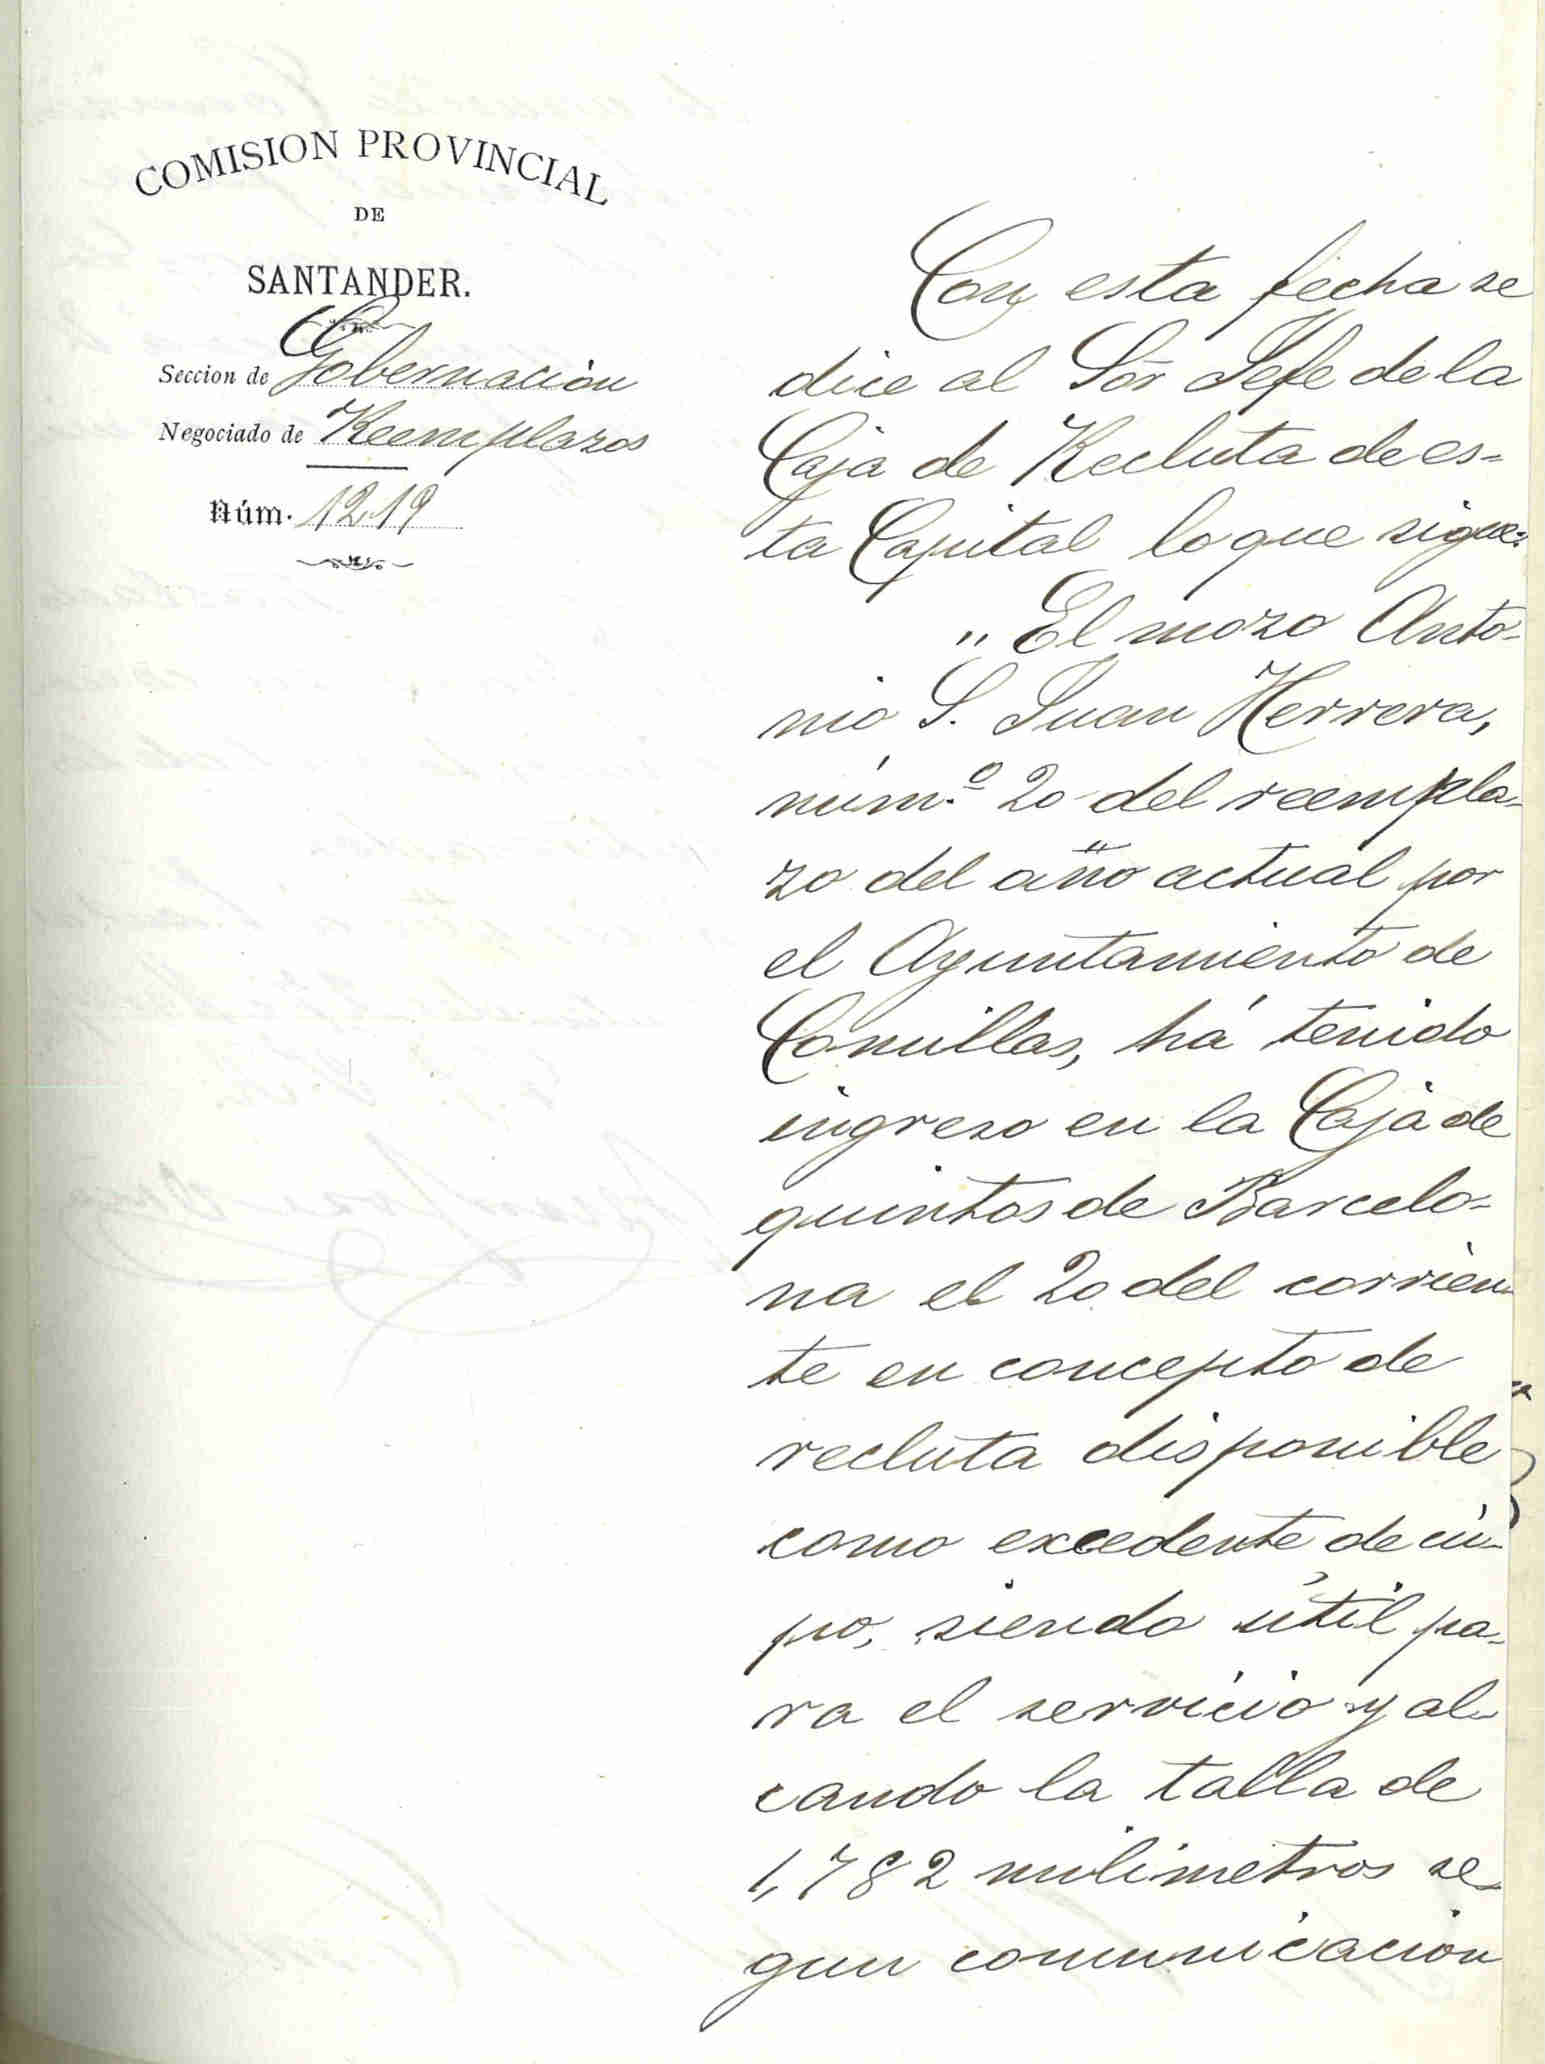 COMISION PROVINCIAL
DE
SANTANDER.
Seccion de Gobernación
Negociado de Reemplazos
Núm. 1219
Con esta fecha se
dice al Sor Jefe de la
Caja de Recluta de es=
ta Capital lo que sigue:
"El mozo Anto-
nio S. Juan Herrera,
núm.º 20 del reempla-
zo del año actual por
el Ayuntamiento de
Comillas, há tenido
ingreso en la Caja de
quintos de Barcelo-
na el 20 del corrien-
te en concepto de
recluta disponible
como excedente de cu-
po, siendo útil pa-
ra el servicio y al-
cando la talla de
1,782 milimetros se-
gun comunicación